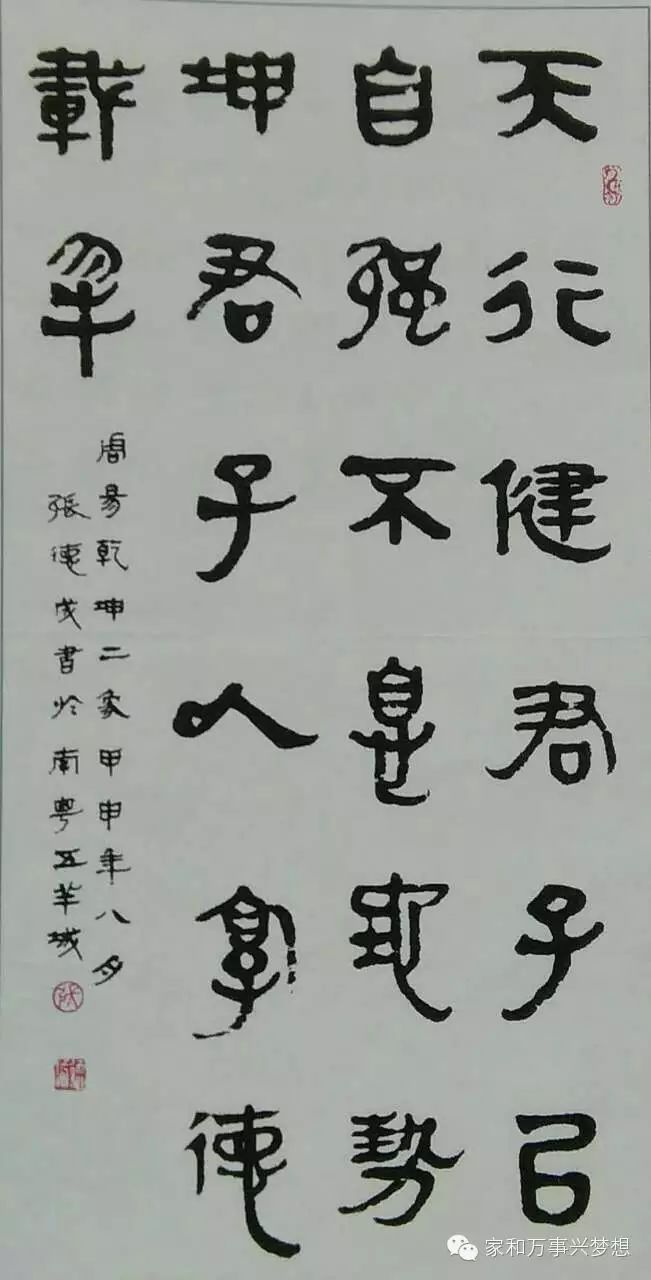 天行健君子以
自强不息地勢
坤君子以厚德
載物
周易乾坤二象甲申年八月
張德成書於南粤五羊城
家和万事兴梦想